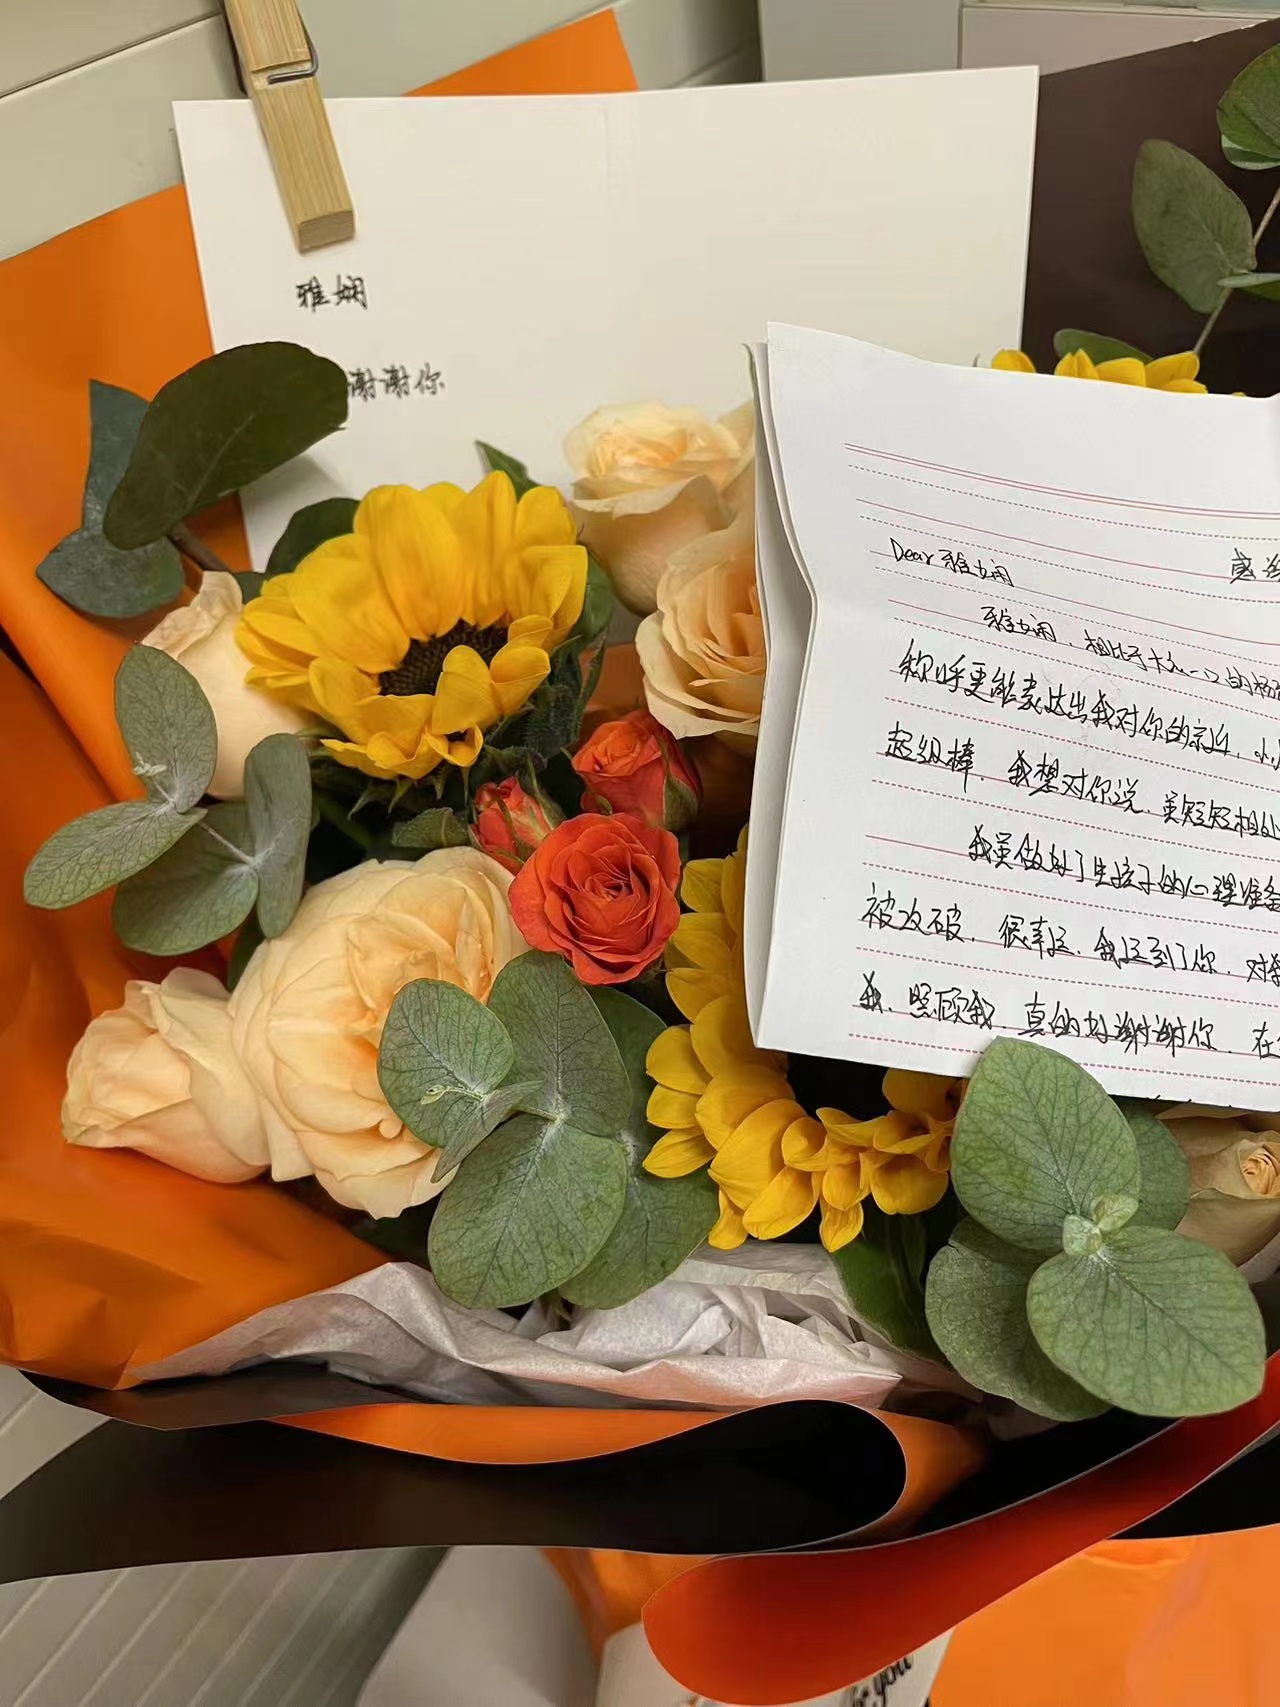 雅娴
谢谢你
Dear 雅娴
感
雅娴，相比于十九一口的杨
称呼更能表达出我对你的亲近，小
超级棒，我想对你说，虽短短相处
我虽做好了生孩子的心理准备
被攻破，很幸运，我遇到了你，对
我，照顾我，真的好谢谢你，在
you